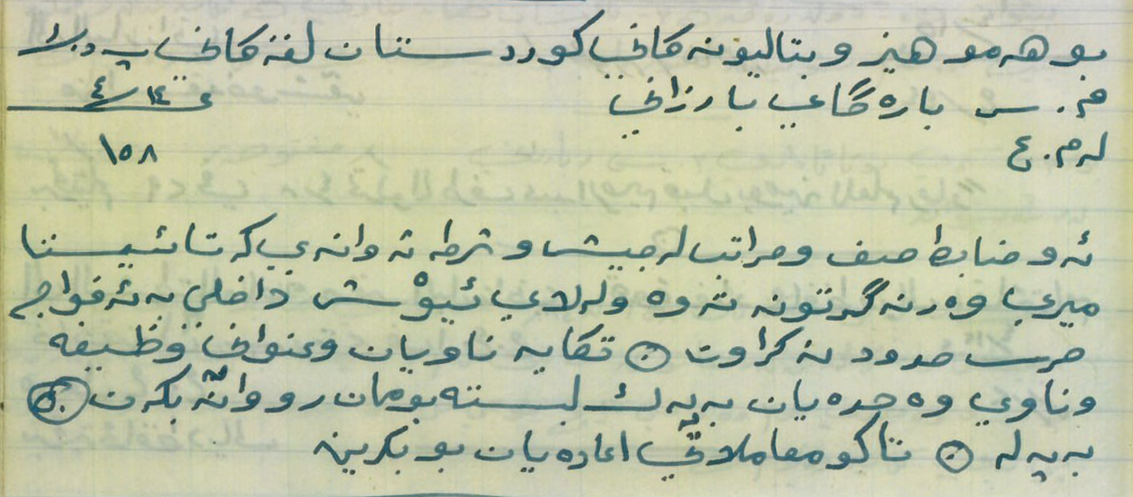 بو هەموو هێز و بتالیونەکانی کوردستان لقەکانی پ د ک
م. س بارەگای بارزانی ١٤/٤
لە م. ع ١٥٨
ئەو ضابط صف و مراتب لە جیش و شرطە ئەوانەی کە تا ئێستا
میری وەرنەگرتونەتەوە ولە لای ئێوەش داخلی بە ئەفواج
حرس حدود نەکراوت ⊙ تکایە ناویان وعنوانی وظیفە
وناوی وەحدەیان بە یەک لیستە بومان روانە بکەن ⊙
بە پەلە ⊙ تاکو معاملاتی اعادەیان بو بکرین